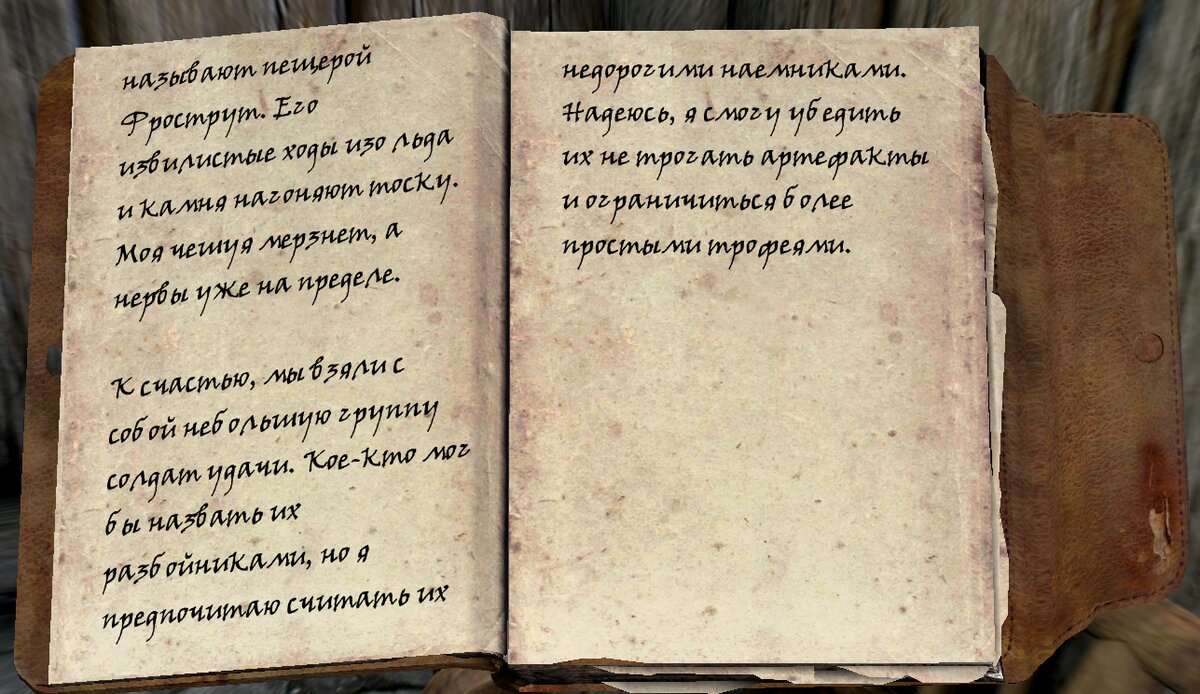 называют пещерой
Фрострут. Его
извилистые ходы изо льда
и камня нагоняют тоску.
Моя чешуя мерзнет, а
нервы уже на пределе.
К счастью, мы взяли с
собой небольшую группу
солдат удачи. Кое-кто мог
бы назвать их
разбойниками, но я
предпочитаю считать их
недорогими наемниками.
Надеюсь, я смогу убедить
их не трогать артефакты
и ограничиться более
простыми трофеями.